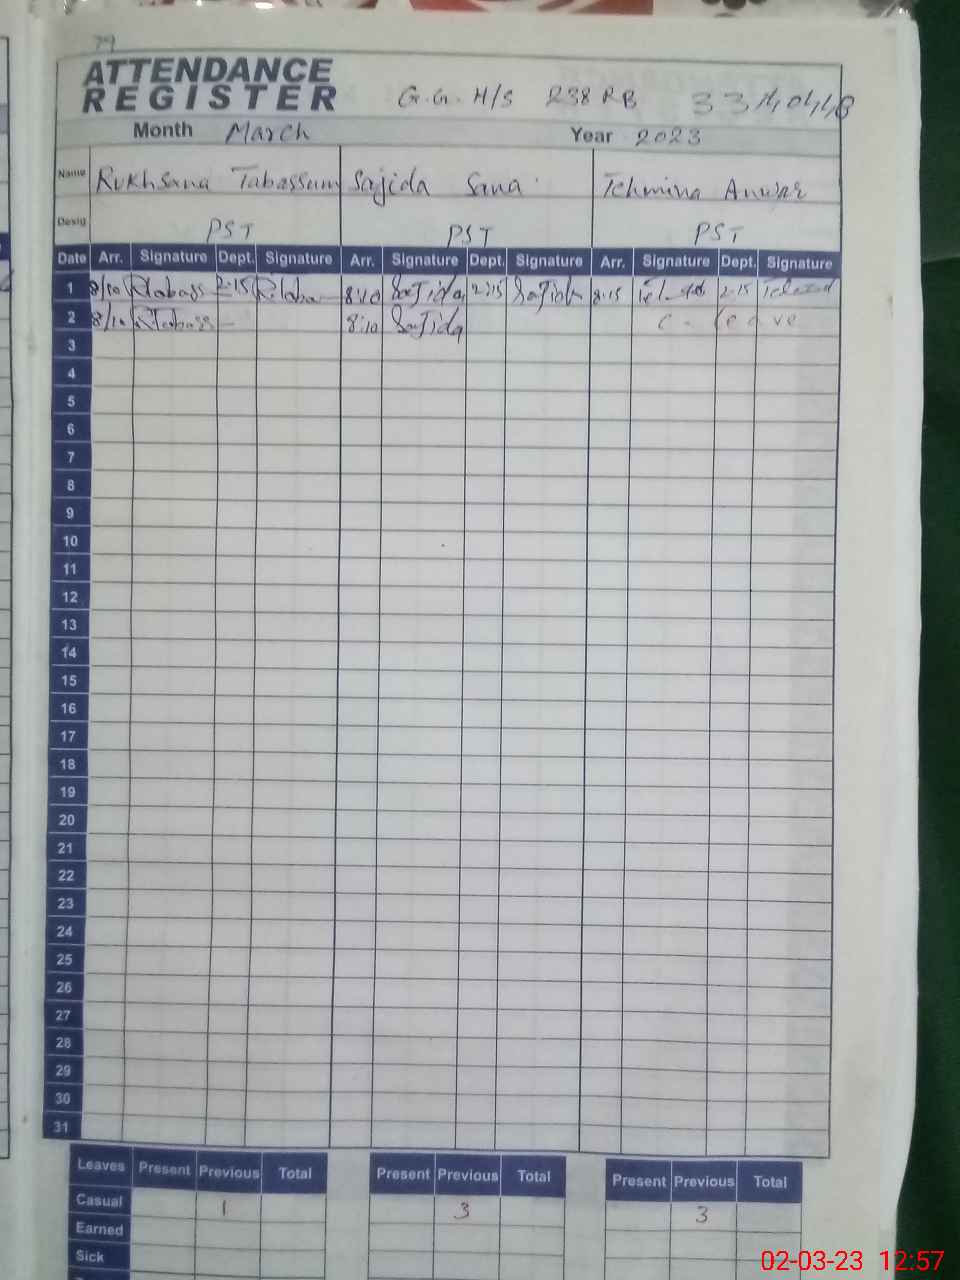 79
ATTENDANCE
REGISTER G.G. H/S 238 RB
Month March Year 2023
Name Rukhsana Tabassum Sajida Sana Tehmina Anwar
Desig PST PST PST
Date Arr. Signature Dept. Signature Arr. Signature Dept. Signature Arr. Signature Dept. Signature
1 8/10 Rtabass 2:15 8:10 Sajida 2:15 Sajida 8:15 2:15
2 8/10 Rtabass 8:10 Sajida C. leave
3
4
5
6
7
8
9
10
11
12
13
14
15
16
17
18
19
20
21
22
23
24
25
26
27
28
29
30
31
Leaves Present Previous Total Present Previous Total Present Previous Total
Casual 1 3 3
Earned
Sick
02-03-23 12:57